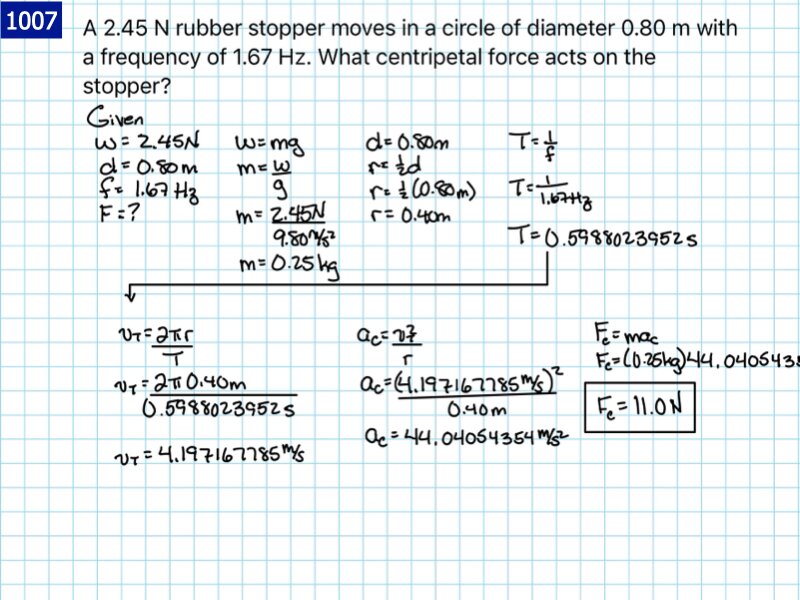 1007
A 2.45 N rubber stopper moves in a circle of diameter 0.80 m with
a frequency of 1.67 Hz. What centripetal force acts on the
stopper?
Given
w = 2.45N
d = 0.80m
f = 1.67 Hz
F = ?
w = mg
m = w/g
m = 2.45N/9.80 m/s²
m = 0.25 kg
d = 0.80m
r = ½d
r = ½(0.80m)
r = 0.40m
T = 1/f
T = 1/1.67Hz
T = 0.5988023952 s
v_T = 2πr/T
v_T = 2π 0.40m/0.5988023952 s
v_T = 4.197167785 m/s
a_c = v_T²/r
a_c = (4.197167785 m/s)²/0.40m
a_c = 44.04054354 m/s²
F_c = ma_c
F_c = (0.25kg)44.0405435
F_c = 11.0 N